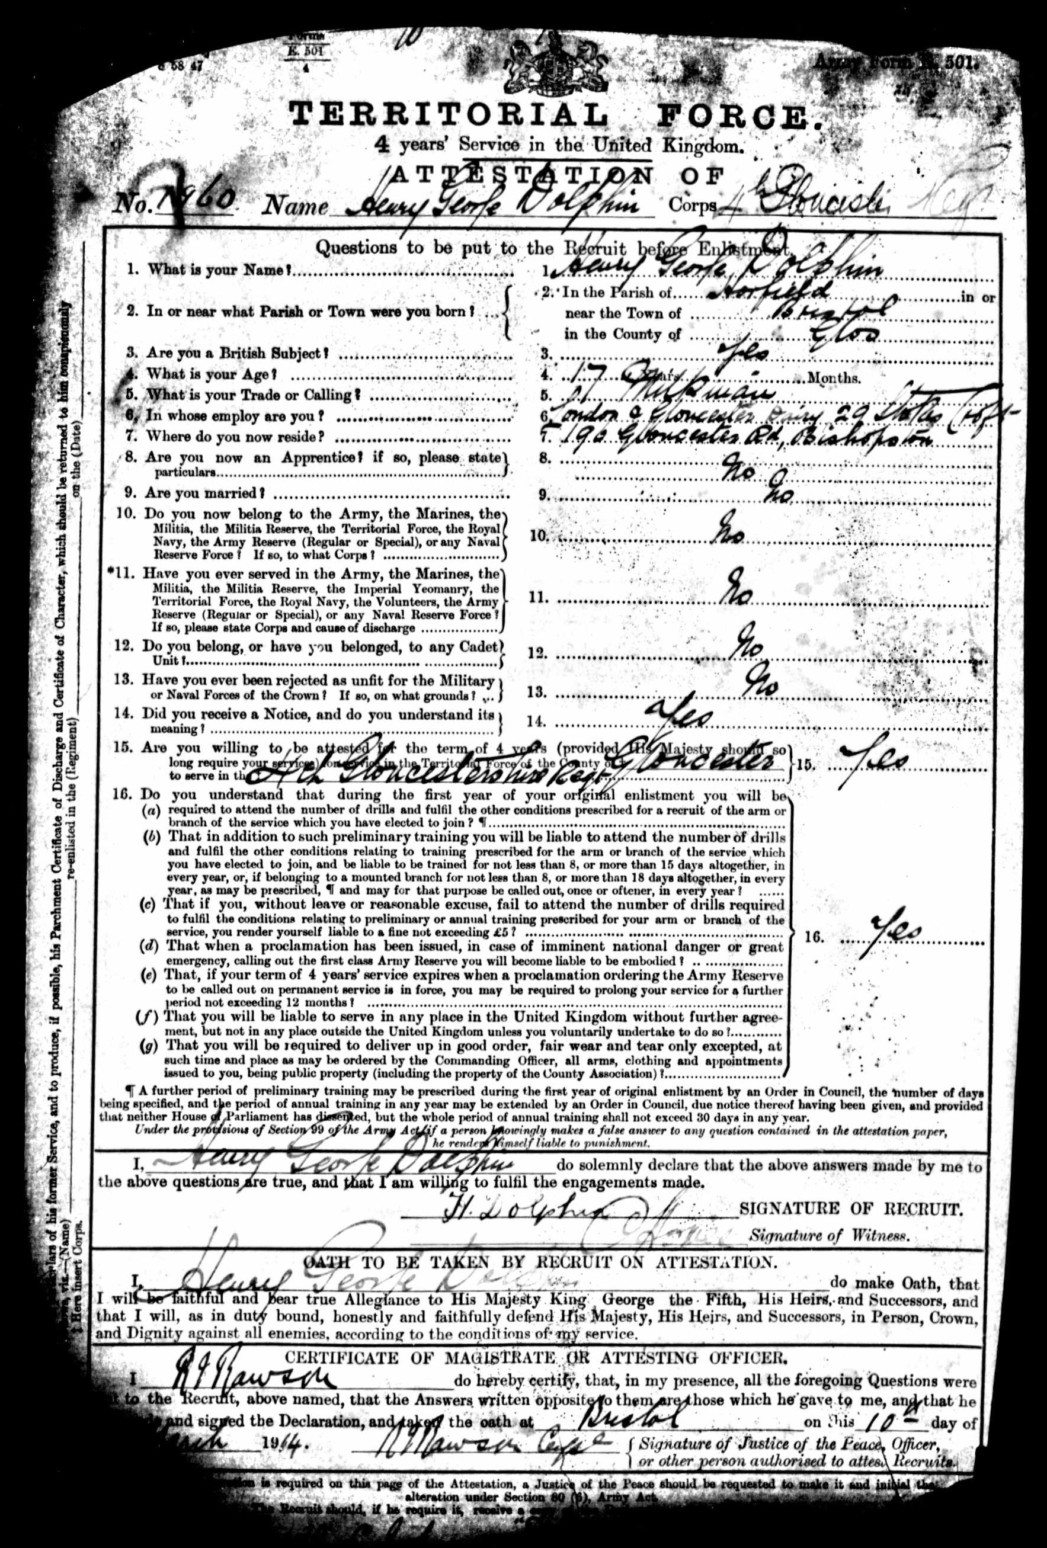 Forms
E. 501
4
Army Form E. 501.
TERRITORIAL FORCE.
4 years' Service in the United Kingdom.
ATTESTATION OF
No. 1960 Name Henry George Dolphin Corps 4th Gloucester Regt
Questions to be put to the Recruit before Enlistment.
1. What is your Name? 1. Henry George Dolphin
2. In or near what Parish or Town were you born? 2. In the Parish of Horfield in or
near the Town of Bristol
in the County of Glos
3. Are you a British Subject? 3. Yes
4. What is your Age? 4. 17 Months.
5. What is your Trade or Calling? 5. Milkman
6. In whose employ are you? 6. London & Gloucester Dairy 29 Stokes Croft
7. Where do you now reside? 7. 196 Gloucester Rd, Bishopston
8. Are you now an Apprentice? if so, please state 8.
particulars No
9. Are you married? 9. No
10. Do you now belong to the Army, the Marines, the
Militia, the Militia Reserve, the Territorial Force, the Royal
Navy, the Army Reserve (Regular or Special), or any Naval 10. No
Reserve Force? If so, to what Corps?
*11. Have you ever served in the Army, the Marines, the
Militia, the Militia Reserve, the Imperial Yeomanry, the
Territorial Force, the Royal Navy, the Volunteers, the Army 11. No
Reserve (Regular or Special), or any Naval Reserve Force?
If so, please state Corps and cause of discharge
12. Do you belong, or have you belonged, to any Cadet 12. No
Unit?
13. Have you ever been rejected as unfit for the Military
or Naval Forces of the Crown? If so, on what grounds? 13. No
14. Did you receive a Notice, and do you understand its 14. Yes
meaning?
15. Are you willing to be attested for the term of 4 years (provided His Majesty should so
long require your services) for service in the Territorial Force of the County of Gloucester 15. Yes
to serve in the 4th Gloucestershire Regt
16. Do you understand that during the first year of your original enlistment you will be
(a) required to attend the number of drills and fulfil the other conditions prescribed for a recruit of the arm or
branch of the service which you have elected to join? ¶
(b) That in addition to such preliminary training you will be liable to attend the number of drills
and fulfil the other conditions relating to training prescribed for the arm or branch of the service which
you have elected to join, and be liable to be trained for not less than 8, or more than 15 days altogether, in
every year, or, if belonging to a mounted branch for not less than 8, or more than 18 days altogether, in every
year, as may be prescribed, ¶ and may for that purpose be called out, once or oftener, in every year?
(c) That if you, without leave or reasonable excuse, fail to attend the number of drills required
to fulfil the conditions relating to preliminary or annual training prescribed for your arm or branch of the
service, you render yourself liable to a fine not exceeding £5?
16. Yes
(d) That when a proclamation has been issued, in case of imminent national danger or great
emergency, calling out the first class Army Reserve you will become liable to be embodied?
(e) That, if your term of 4 years' service expires when a proclamation ordering the Army Reserve
to be called out on permanent service is in force, you may be required to prolong your service for a further
period not exceeding 12 months?
(f) That you will be liable to serve in any place in the United Kingdom without further agree-
ment, but not in any place outside the United Kingdom unless you voluntarily undertake to do so?
(g) That you will be required to deliver up in good order, fair wear and tear only excepted, at
such time and place as may be ordered by the Commanding Officer, all arms, clothing and appointments
issued to you, being public property (including the property of the County Association)?
¶ A further period of preliminary training may be prescribed during the first year of original enlistment by an Order in Council, the number of days
being specified, and the period of annual training in any year may be extended by an Order in Council, due notice thereof having been given, and provided
that neither House of Parliament has dissented, but the whole period of annual training shall not exceed 30 days in any year.
Under the provisions of Section 99 of the Army Act, if a person knowingly makes a false answer to any question contained in the attestation paper,
he renders himself liable to punishment.
I, Henry George Dolphin do solemnly declare that the above answers made by me to
the above questions are true, and that I am willing to fulfil the engagements made.
H. Dolphin SIGNATURE OF RECRUIT.
Signature of Witness.
OATH TO BE TAKEN BY RECRUIT ON ATTESTATION.
I, Henry George Dolphin do make Oath, that
I will be faithful and bear true Allegiance to His Majesty King George the Fifth, His Heirs, and Successors, and
that I will, as in duty bound, honestly and faithfully defend His Majesty, His Heirs, and Successors, in Person, Crown,
and Dignity against all enemies, according to the conditions of my service.
CERTIFICATE OF MAGISTRATE OR ATTESTING OFFICER.
I R J Rawson do hereby certify, that, in my presence, all the foregoing Questions were
to the Recruit, above named, that the Answers written opposite to them are those which he gave to me, and that he
and signed the Declaration, and taken the oath at Bristol on this 10th day of
March 1914. R J Rawson Capt Signature of Justice of the Peace, Officer,
or other person authorised to attest Recruits.
is required on this page of the Attestation, a Justice of the Peace should be requested to make it and initial the
alteration under Section 80 (6), Army Act.
The Recruit should, if he require it, receive a
of his former Service, and to produce, if possible, his Parchment Certificate of Discharge and Certificate of Character, which should be returned to him conspicuously
(Name) re-enlisted in the (Regiment) on the (Date)
Here insert Corps.